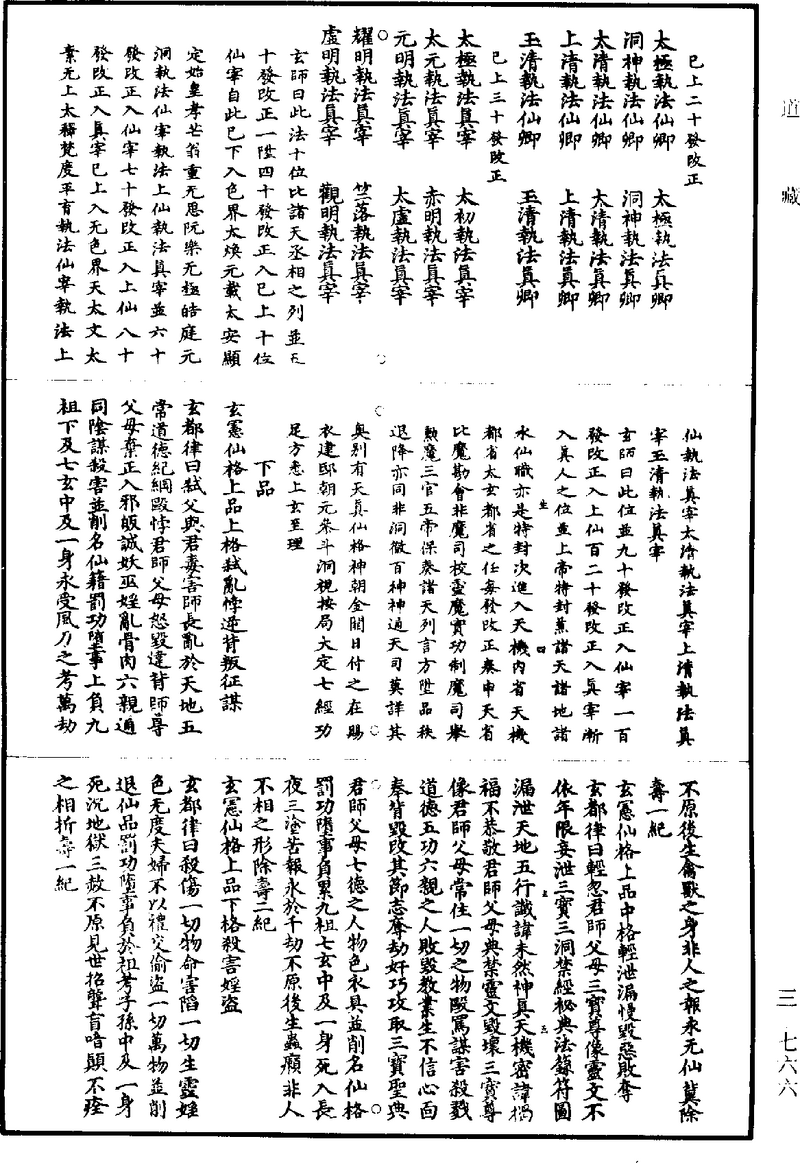 道藏
三 七六六
已上二十發改正
太極執法仙卿 太極執法真卿
洞神執法仙卿 洞神執法真卿
太清執法仙卿 太清執法真卿
上清執法仙卿 上清執法真卿
玉清執法仙卿 玉清執法真卿
已上三十發改正
太極執法真宰 太初執法真宰
太元執法真宰 赤明執法真宰
元明執法真宰 太虛執法真宰
耀明執法真宰 竺落執法真宰
虛明執法真宰 觀明執法真宰
玄師曰此法十位比諸天丞相之列並五
十發改正一陞四十發改正入已上十位
仙宰自此已下入色界太煥元載太安顯
定始皇孝芒翁重无思阮樂元極皓庭元
洞執法仙宰執法上仙執法真宰並六十
發改正入仙宰七十發改正入上仙八十
發改正入真宰已上入无色界天太文太
素无上太釋梵度平育執法仙宰執法上
仙執法真宰太清執法真宰上清執法真
宰玉清執法真宰
玄師曰此位並九十發改正入仙宰一百
發改正入上仙百二十發改正入真宰漸
入真人之位並上帝特封蒸諸天諸地諸
水仙職亦是特封次進入天機內省天機
都省太玄都省之任每發改正奏申天省
比魔勘會非魔司校盃魔實功制魔司舉
勲魔三官五帝保奏諸天列言方陞品秩
退降亦同非洞微百神神通天司莫詳其
奥別有天真仙格神朝金闕日付之在賜
衣建邸朝元朵斗洞視按局大定七經功
足方悉上玄至理
下品
玄憲仙格上品上格弒亂悖逆背叛征謀
玄都律曰弒父與君毒害師長亂於天地五
常道德紀綱毆悖君師父母怒毀違背師尊
父母棄正入邪皈誠妖巫婬亂骨肉六親通
同陰謀殺害並削名仙籍罰功墮事上負九
祖下及七玄中及一身永受風刀之考萬劫
不原後生禽獸之身非人之報永无仙冀除
壽一紀
玄憲仙格上品中格輕泄漏慢毀惡敗奪
玄都律曰輕忽君師父母三寶尊像靈文不
依年限妄泄三寶三洞禁經祕典法籙符圖
漏泄天地五行讖諱未然神真天機密諱禍
福不恭敬君師父母典禁靈文毀壞三寶尊
像君師父母常住一切之物毆罵謀害殺戮
道德五功六親之人敗毀教業生不信心面
奉背毀改其節志奪劫奸巧攻取三寶聖典
君師父母七德之人物色衣具並削名仙格
罰功墮事負累九祖七玄中及一身死入長
夜三塗苦報永於千劫不原後生蟲癩非人
不相之形除壽二紀
玄憲仙格上品下格殺害婬盜
玄都律曰殺傷一切物命害陷一切生靈婬
色无度夫婦不以禮交偷盜一切萬物並削
退仙品罰功墮事負於祖考子孫中及一身
死沉地獄三赦不原見世招聾盲喑顛不痊
之相折壽一紀